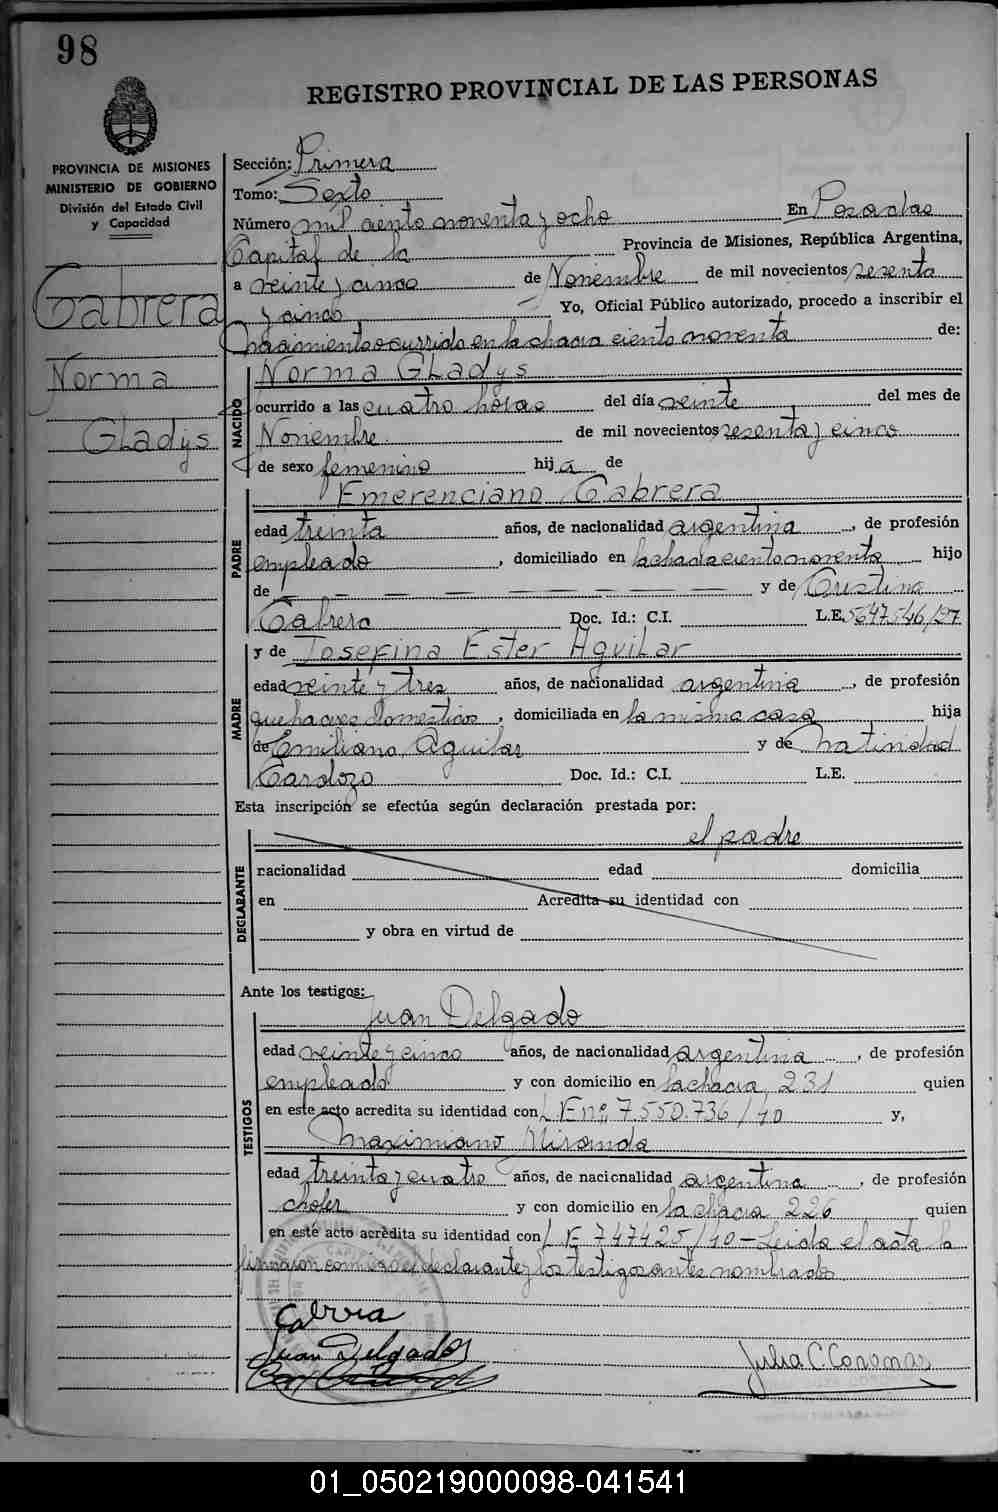 98
REGISTRO PROVINCIAL DE LAS PERSONAS
PROVINCIA DE MISIONES
MINISTERIO DE GOBIERNO
División del Estado Civil
y Capacidad
Cabrera
Norma
Gladys
Sección: Primera
Tomo: Sexto
Número mil ciento noventa y ocho En Posadas
Capital de la Provincia de Misiones, República Argentina,
a veinte y cinco de Noviembre de mil novecientos sesenta
y cinco Yo, Oficial Público autorizado, procedo a inscribir el
Nacimiento ocurrido en la chacra ciento noventa de:
NACIDO
Norma Gladys
ocurrido a las cuatro horas del día veinte del mes de
Noviembre de mil novecientos sesenta y cinco
de sexo femenino hij a de
Emerenciano Cabrera
PADRE
edad treinta años, de nacionalidad argentina, de profesión
empleado, domiciliado en la chacra ciento noventa hijo
de — — — — — — — — y de Cristina
Cabrera Doc. Id.: C.I. L.E. 5647546/27
y de Josefina Ester Aguilar
MADRE
edad veinte y tres años, de nacionalidad argentina, de profesión
quehaceres domesticos, domiciliada en la misma casa hija
de Emiliano Aguilar y de Natividad
Cardozo Doc. Id.: C.I. L.E.
Esta inscripción se efectúa según declaración prestada por:
el padre
DECLARANTE
nacionalidad edad domicilia
en Acredita su identidad con
y obra en virtud de
Ante los testigos:
Juan Delgado
TESTIGOS
edad veinte y cinco años, de nacionalidad argentina, de profesión
empleado y con domicilio en la chacra 231 quien
en este acto acredita su identidad con L.E nº 7.550.736/10 y,
Maximiano Miranda
edad treinta y cuatro años, de nacionalidad argentina, de profesión
chofer y con domicilio en la chacra 226 quien
en este acto acredita su identidad con L E 747425/10 - Leida el acta la
firmaron conmigo el declarante y los testigos antes nombrados
Cabrera
Juan Delgado
Julia C. Coronas
01_050219000098-041541